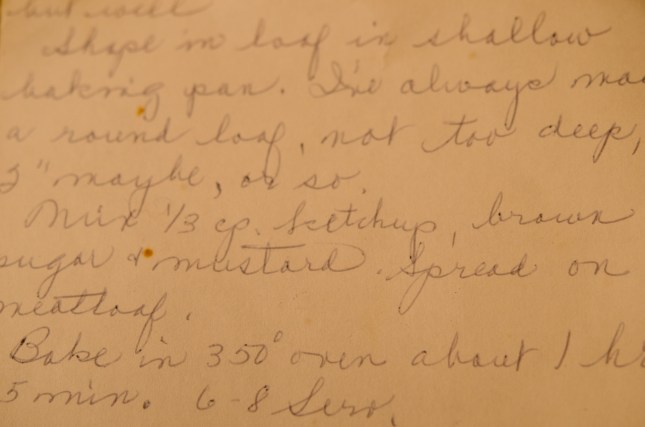 but well
Shape in loaf in shallow
baking pan. I've always ma
a round loaf, not too deep,
3" maybe, or so.
Mix 1/3 cp. ketchup, brown
sugar & mustard. Spread on
meatloaf.
Bake in 350° oven about 1 hr
5 min. 6-8 Serv.